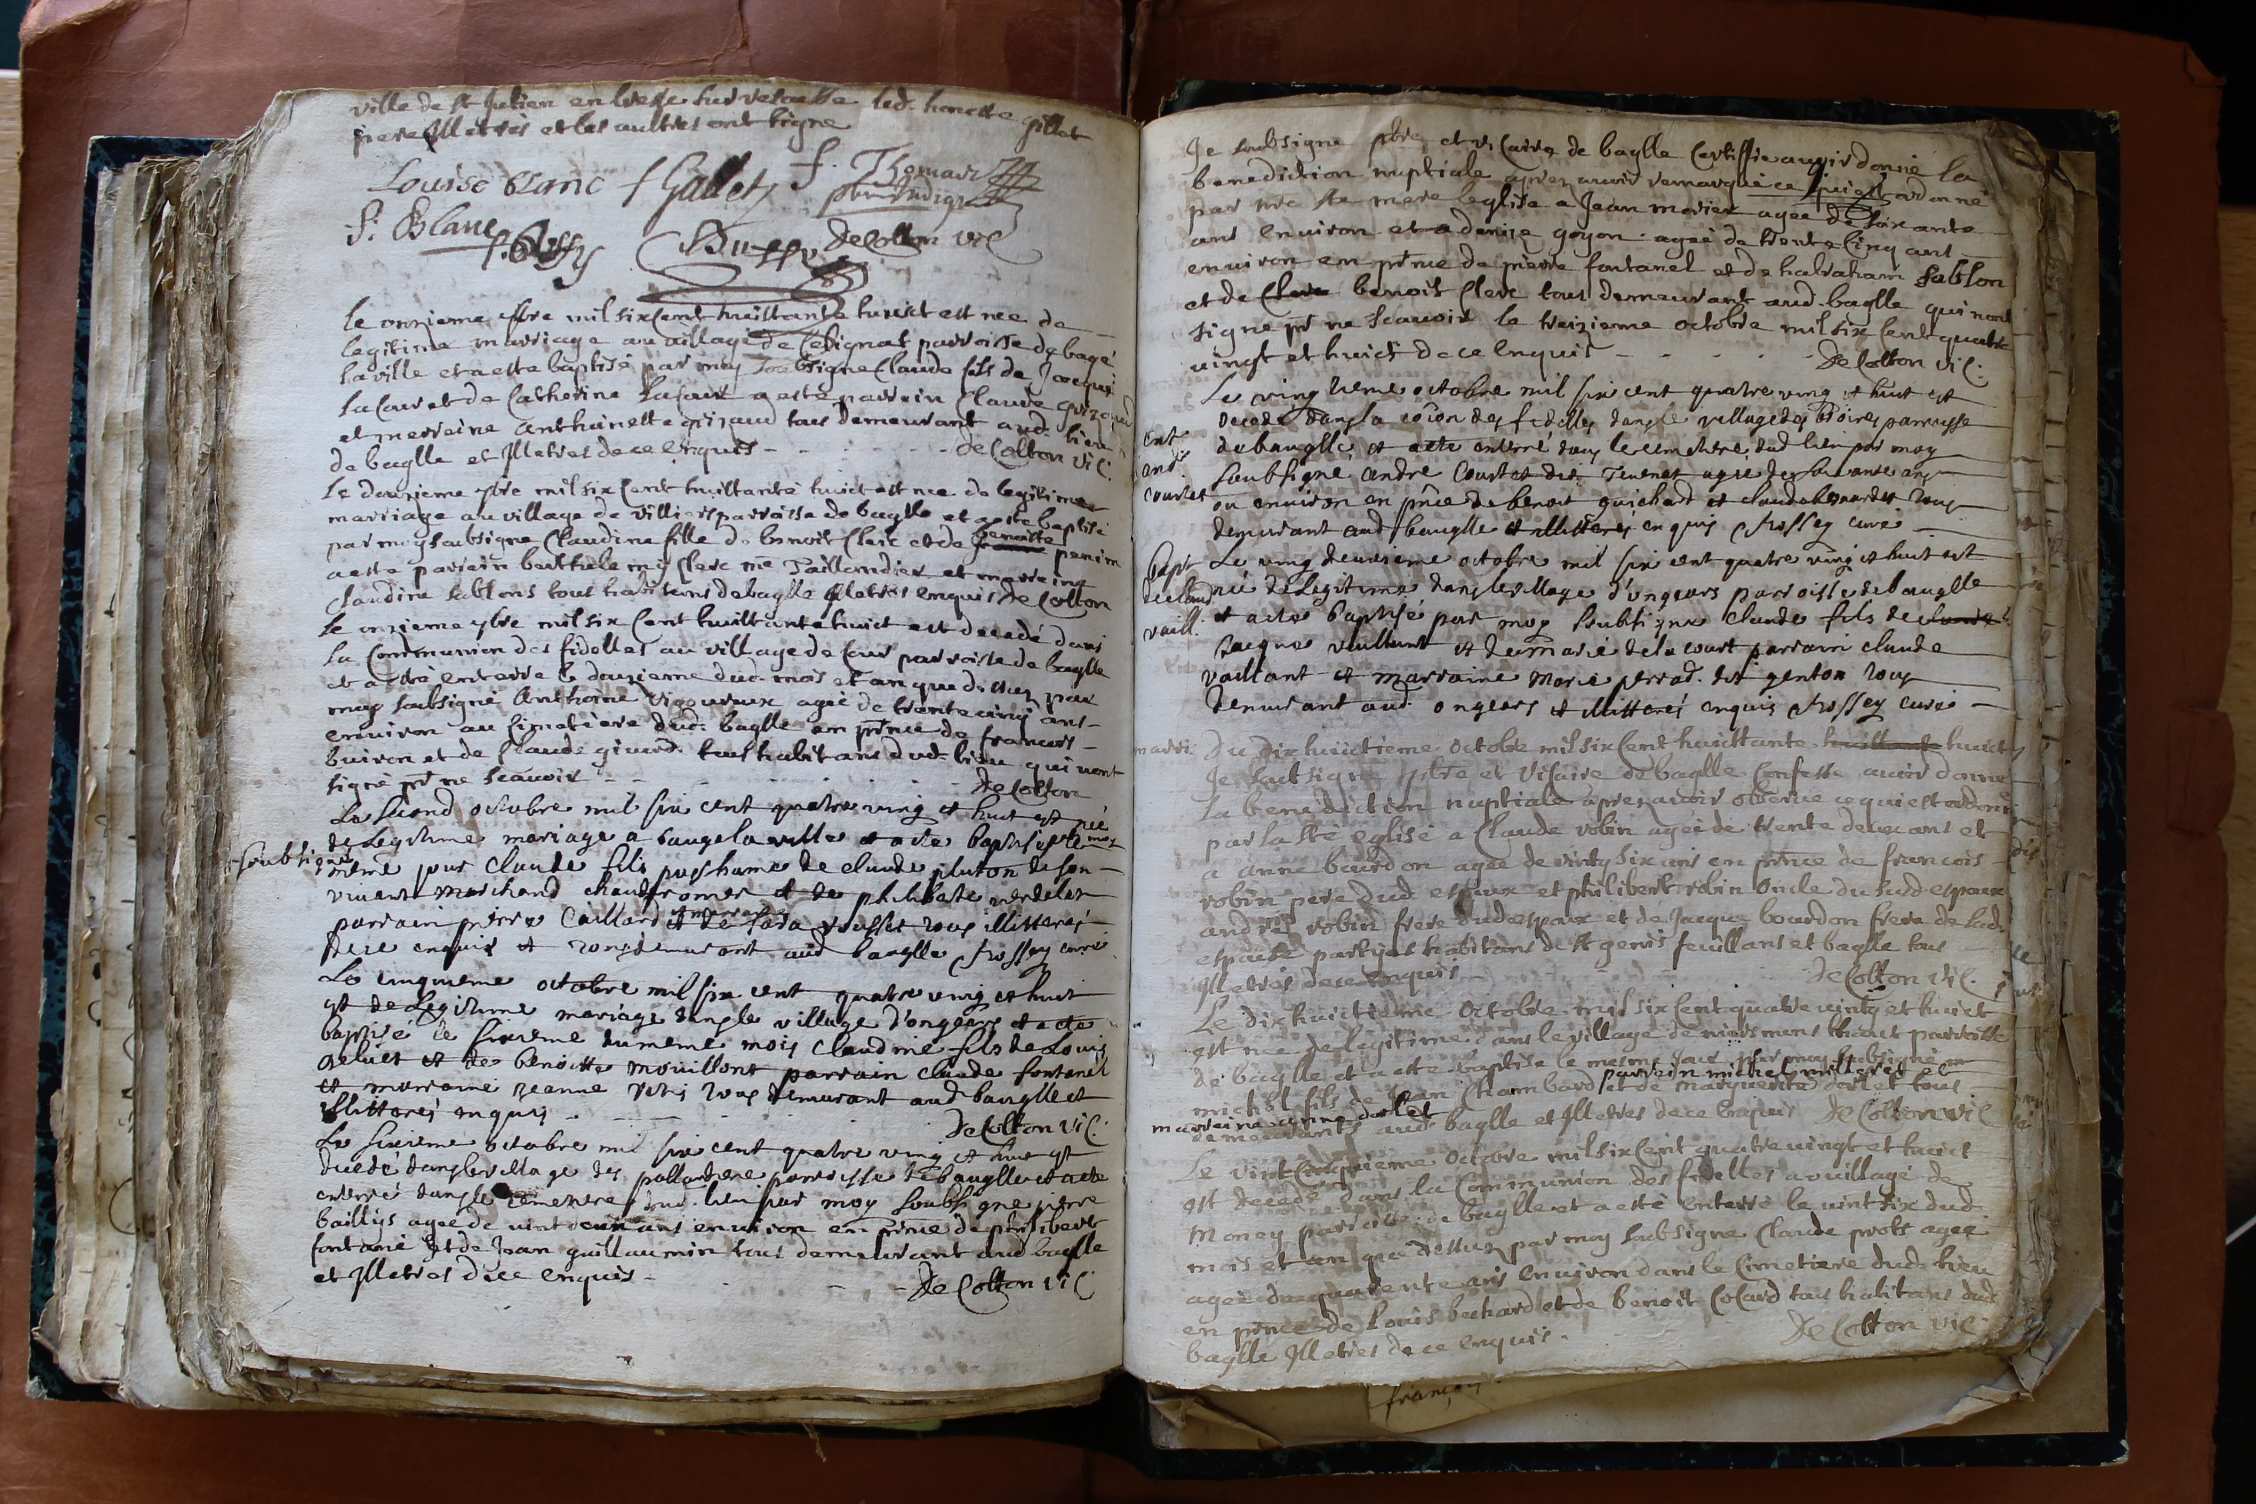 ville de st Julien en bresse led. honeste gillet
pere Illetrés et les aultres ont signe
Louise blanc f Gallet f. Thomas
f. Blanc Buffy DeColton vic
le onzieme 7bre mil six Cent huittante huict est nee de
legitime marriage au village de Cesignat parroisse de bagé
la ville et a esté baptisé par moy Soubsigne Claude fils de Jacque
la Cour et de Catherine a esté parrein Claude
et merreine Anthoinette grizaud tous demeurant aud. lieu
de baglle et Illetres de ce enquis - - - - deColton vic.
le douzieme 7bre mil six Cent huittante huict est nee de legitime
marriage au village de villiers parroisse de baglle et a este baptisé
par moy soubsigne Claudine fille de benoit Clerc et de benoitte
a esté parrein berthelemy Clerc me Taillandier et merreine
Claudine sablons tous habitans de baglle Illetres enquis de Colton
le onzieme 7bre mil six Cent huittante huict est decedé dans
la Communion des fidelles au village de Cour parroisse de baglle
et a esté enterré le douzieme dud. mois et an que dessus par
moy soubsigné Anthoine Vigoureux agé de trente cinq ans
environ au Cimetiere dud. baglle en pñce de francois
buiron et de Claude girard tous habitans dud. lieu qui n'ont
signé pr ne scauoir - - - - DeColton
Le second octobre mil six cent quatre ving et huit est né
de Legitime mariage a baugé la ville et a este baptisé le
soubsigné
même jour Claude fils posthume de claude pluton de son
vivant Marchand chaudronier et de philiberte
parrain pierre Caillard et marraine Sara rousset tous illitterés
de ce enquis et tous demurant aud baglle frossey curé
Le cinquieme octobre mil six cent quatre ving et huit
est de Legitime mariage dans le village d'ongears et a este
baptisé le sixieme du meme mois Claudine fils de Louis
et de benoitte mouillont parrain claude fontanel
et marraine jeanne tous demurant aud bauglle et
illitterés enquis - - - DeColton vic.
Le sixieme octobre mil six cent quatre ving et huit est
decedé dans le village des parroisse de bauglle et a este
enterré dans le cemetere dud. lieu par moy soubsigne pierre
baillys agee de vint deux ans environ en pñce de philibert
fontane et de Jean guillaumin tous demeurant aud baglle
et Illetres de ce enquis - - - DeColton vic.
Je soubsigne pbre et vicaire de baglle Certiffie auoir donné la
benediction nuptiale apres auoir remarqué ce qui est ordonné
par nre ste mere leglise a Jean morier agee de soixante
ans environ et a denise goyon agée de trente Cinq ans
environ en pñce de pierre fontanel et de habraham sablon
et de Clerc benoit Clerc tous demeurant aud. baglle qui nont
signé pr ne scauoir le treizieme octobre mil six Cent quatre
uingt et huict de ce Enquis - - - DeColton vic.
Le ving octobre mil six cent quatre ving et huit est
decedé dans la cõion des fidelles dans le village des parroisse
ent
de bauglle, et a este enterré dans le cemettere dud lieu par moy
and.
soubsigne Andre Courtet dit Tevenet agee de soixante ans
courtet
ou environ en pñce de benoit guichard et claude tous
demurant aud bauglle et illitterés enquis frossey curé
bapt
Le ving deuxieme octobre mil six cent quatre ving et huit est
de claud
né de Legitime dans le village d'ongears parroisse de bauglle
vaill.
et a este baptisé par moy soubsigne claude fils de
Jacques vaillant et de marie de la court parrain claude
vaillant et marraine marie perrad. dit genton tous
demurant aud. ongears et illitterés enquis frossey curé
marri
Du dixhuictieme octobre mil six Cent huittante huittante huict
Je soubsigne pbre et Vicaire de baglle Confesse auoir donné
la benediction nuptiale apres auoir observe ce qui est ordonné
par la Ste eglise a Claude robin agée de trente deux ans et
a anne bourdon agée de vinty six ans en pñce de francois
robin pere dud espoux et philibert robin Oncle du sud espoux
andré robin frere dud espoux et de Jacque bourdon frere de lad.
espouse partyes habitans de st genis feuillans et baglle tous
Illetrés de ce enquis - - - DeColton vic.
Le dixhuictieme Octobre mil six Cent quatre vintg et huict
est nee de legitime dans le village de parroisse
de baglle et a esté baptisé le mesme Jour par moy soubsigné
parrein michel
michel fils de Jean Chambard et de marguerite dorlet tous
marreine anne dorlet
demeurants aud baglle et Illetres de ce Enquis DeColton vic
Le vint Cinquieme Octobre mil six Cent quatre vingt et huict
est decedé dans la Communion des fidelles au village de
Money parroisse de baglle et a esté enterré le vint six dud.
mois et an que dessus par moy soubsigne Claude prost agee
agee de quarente ans environ dans le Cimetiere dud. lieu
en pñce de Louis bechard et de benoit Cocard tous habitans dud
baglle Illetres de ce enquis. DeColton vic.
francois